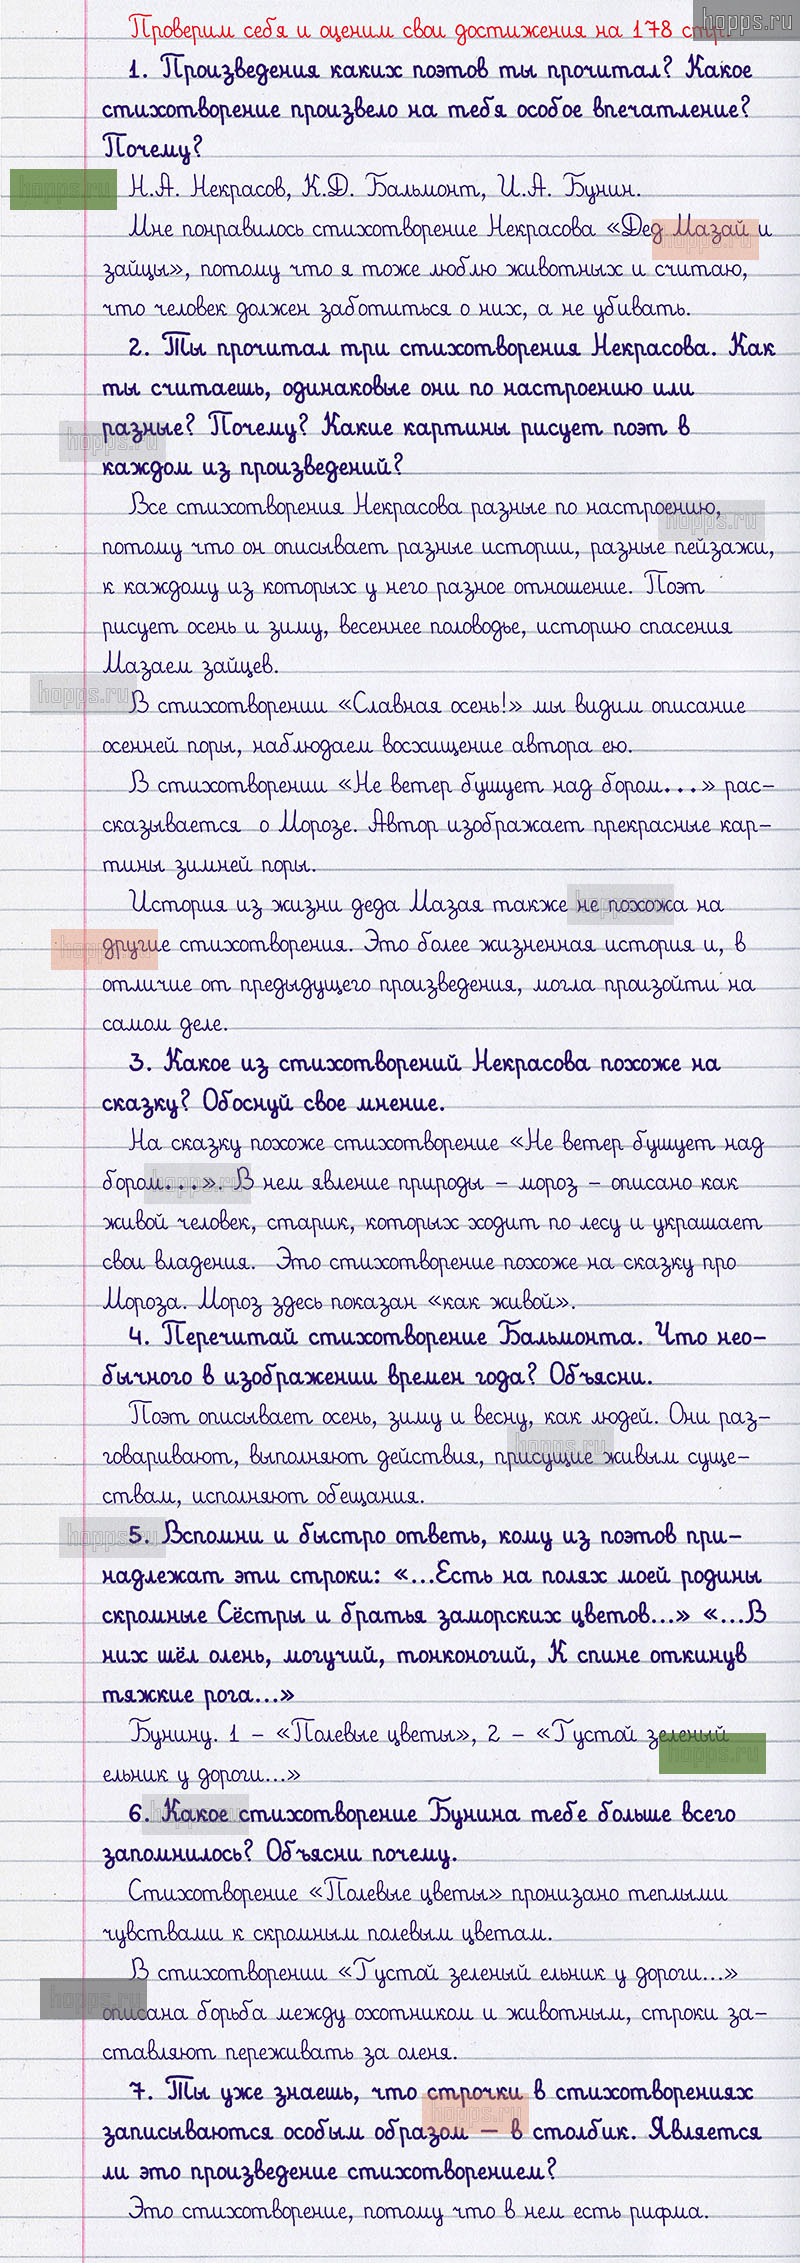 hopps.ru
Проверим себя и оценим свои достижения на 178 стр.
1. Произведения каких поэтов ты прочитал? Какое
стихотворение произвело на тебя особое впечатление?
Почему?
hopps.ru
Н.А. Некрасов, К.Д. Бальмонт, И.А. Бунин.
Мне понравилось стихотворение Некрасова «Дед Мазай и
hopps.ru
зайцы», потому что я тоже люблю животных и считаю,
что человек должен заботиться о них, а не убивать.
2. Ты прочитал три стихотворения Некрасова. Как
ты считаешь, одинаковые они по настроению или
разные? Почему? Какие картины рисует поэт в
hopps.ru
каждом из произведений?
Все стихотворения Некрасова разные по настроению,
hopps.ru
потому что он описывает разные истории, разные пейзажи,
к каждому из которых у него разное отношение. Поэт
рисует осень и зиму, весеннее половодье, историю спасения
Мазаем зайцев.
hopps.ru
В стихотворении «Славная осень!» мы видим описание
осенней поры, наблюдаем восхищение автора ею.
В стихотворении «Не ветер бушует над бором...» рас-
сказывается о Морозе. Автор изображает прекрасные кар-
тины зимней поры.
История из жизни деда Мазая также не похожа на
hopps.ru
другие стихотворения. Это более жизненная история и, в
hopps.ru
отличие от предыдущего произведения, могла произойти на
самом деле.
3. Какое из стихотворений Некрасова похоже на
сказку? Обоснуй свое мнение.
На сказку похоже стихотворение «Не ветер бушует над
бором...». В нем явление природы – мороз – описано как
hopps.ru
живой человек, старик, которых ходит по лесу и украшает
свои владения. Это стихотворение похоже на сказку про
Мороза. Мороз здесь показан «как живой».
4. Перечитай стихотворение Бальмонта. Что нео-
бычного в изображении времен года? Объясни.
Поэт описывает осень, зиму и весну, как людей. Они раз-
говаривают, выполняют действия, присущие живым суще-
hopps.ru
ствам, исполняют обещания.
hopps.ru
5. Вспомни и быстро ответь, кому из поэтов при-
надлежат эти строки: «...Есть на полях моей родины
скромные Сёстры и братья заморских цветов...» «...В
них шёл олень, могучий, тонконогий, К спине откинув
тяжкие рога...»
Бунину. 1 – «Полевые цветы», 2 – «Густой зеленый
hopps.ru
ельник у дороги...»
6. Какое стихотворение Бунина тебе больше всего
hopps.ru
запомнилось? Объясни почему.
Стихотворение «Полевые цветы» пронизано теплыми
чувствами к скромным полевым цветам.
В стихотворении «Густой зеленый ельник у дороги...»
hopps.ru
описана борьба между охотником и животным, строки за-
ставляют переживать за оленя.
7. Ты уже знаешь, что строчки в стихотворениях
hopps.ru
записываются особым образом – в столбик. Является
ли это произведение стихотворением?
Это стихотворение, потому что в нем есть рифма.